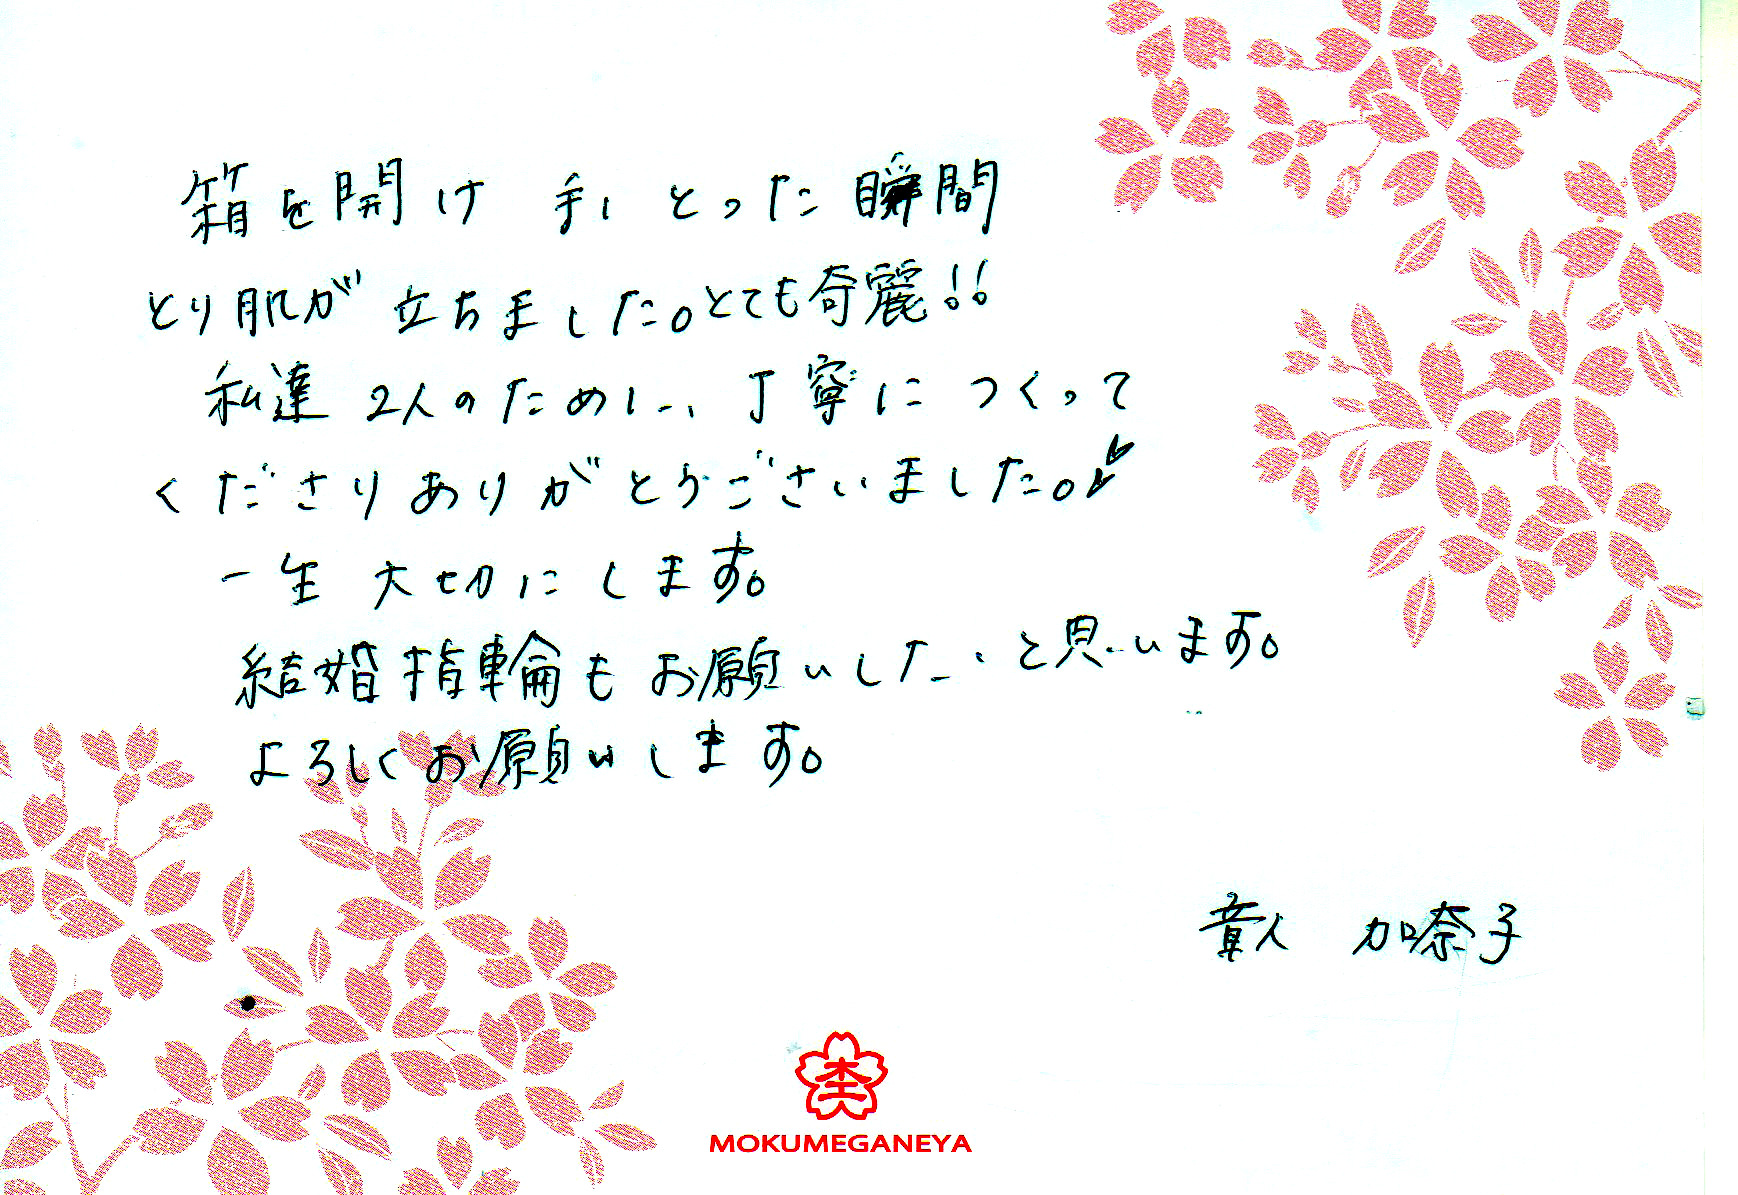 箱を開け 手に とった瞬間
とり肌が 立ちました。とても奇麗!!
私達 2人のために、丁寧に つくって
くださり ありがとうございました。
一生 大切にします。
結婚指輪も お願いしたいと思います。
よろしくお願いします。
章人 加奈子
MOKUMEGANEYA